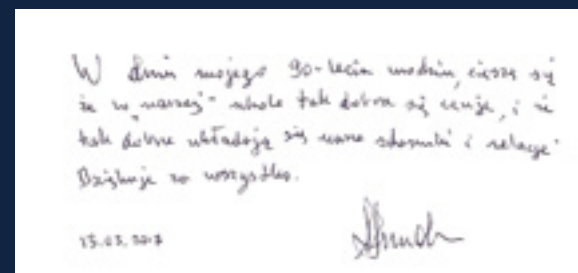 W dniu mojego 90-lecia urodzin, cieszę się
że w „naszej” szkole tak dobrze się czuję, i że
tak dobrze układają się nasze stosunki i relacje.
Dziękuję za wszystko.
15.03.2017